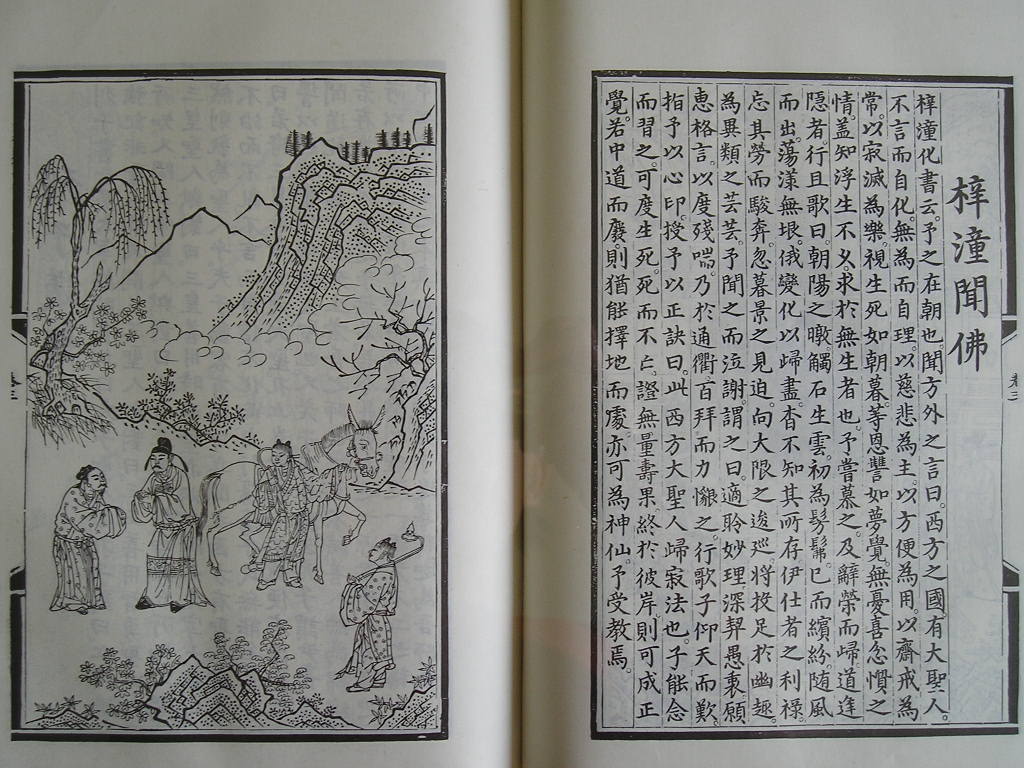 梓潼聞佛
梓潼化書云。予之在朝也。聞方外之言曰。西方之國。有大聖人。
不言而自化。無為而自理。以慈悲為主。以方便為用。以齋戒為
常。以寂滅為樂。視生死如朝暮。等恩讐如夢覺。無憂喜忿懼之
情。葢知浮生不久。求於無生者也。予嘗慕之。及辭榮而歸。道逢
隱者。行且歌曰。朝陽之暾。觸石生雲。初為髣髴。已而繽紛。随風
而出。蕩漾無垠。俄變化以歸盡。杳不知其所存。伊仕者之利祿。
忘其勞而駿奔。忽暮景之見迫。向大限之逡廵。將投足於幽趣。
為異類之芸芸。予聞之而泣謝。謂之曰。適聆妙理。深契愚衷。願
惠格言。以度殘喘。乃於通衢百拜而力懇之。行歌子仰天而歎。
指予以心印。授予以正訣曰。此西方大聖人歸寂法也。子能念
而習之。可度生死。死而不亡。證無量壽果。終於彼岸。則可成正
覺。若中道而廢。則猶能擇地而處。亦可為神仙。予受教焉。
卷三